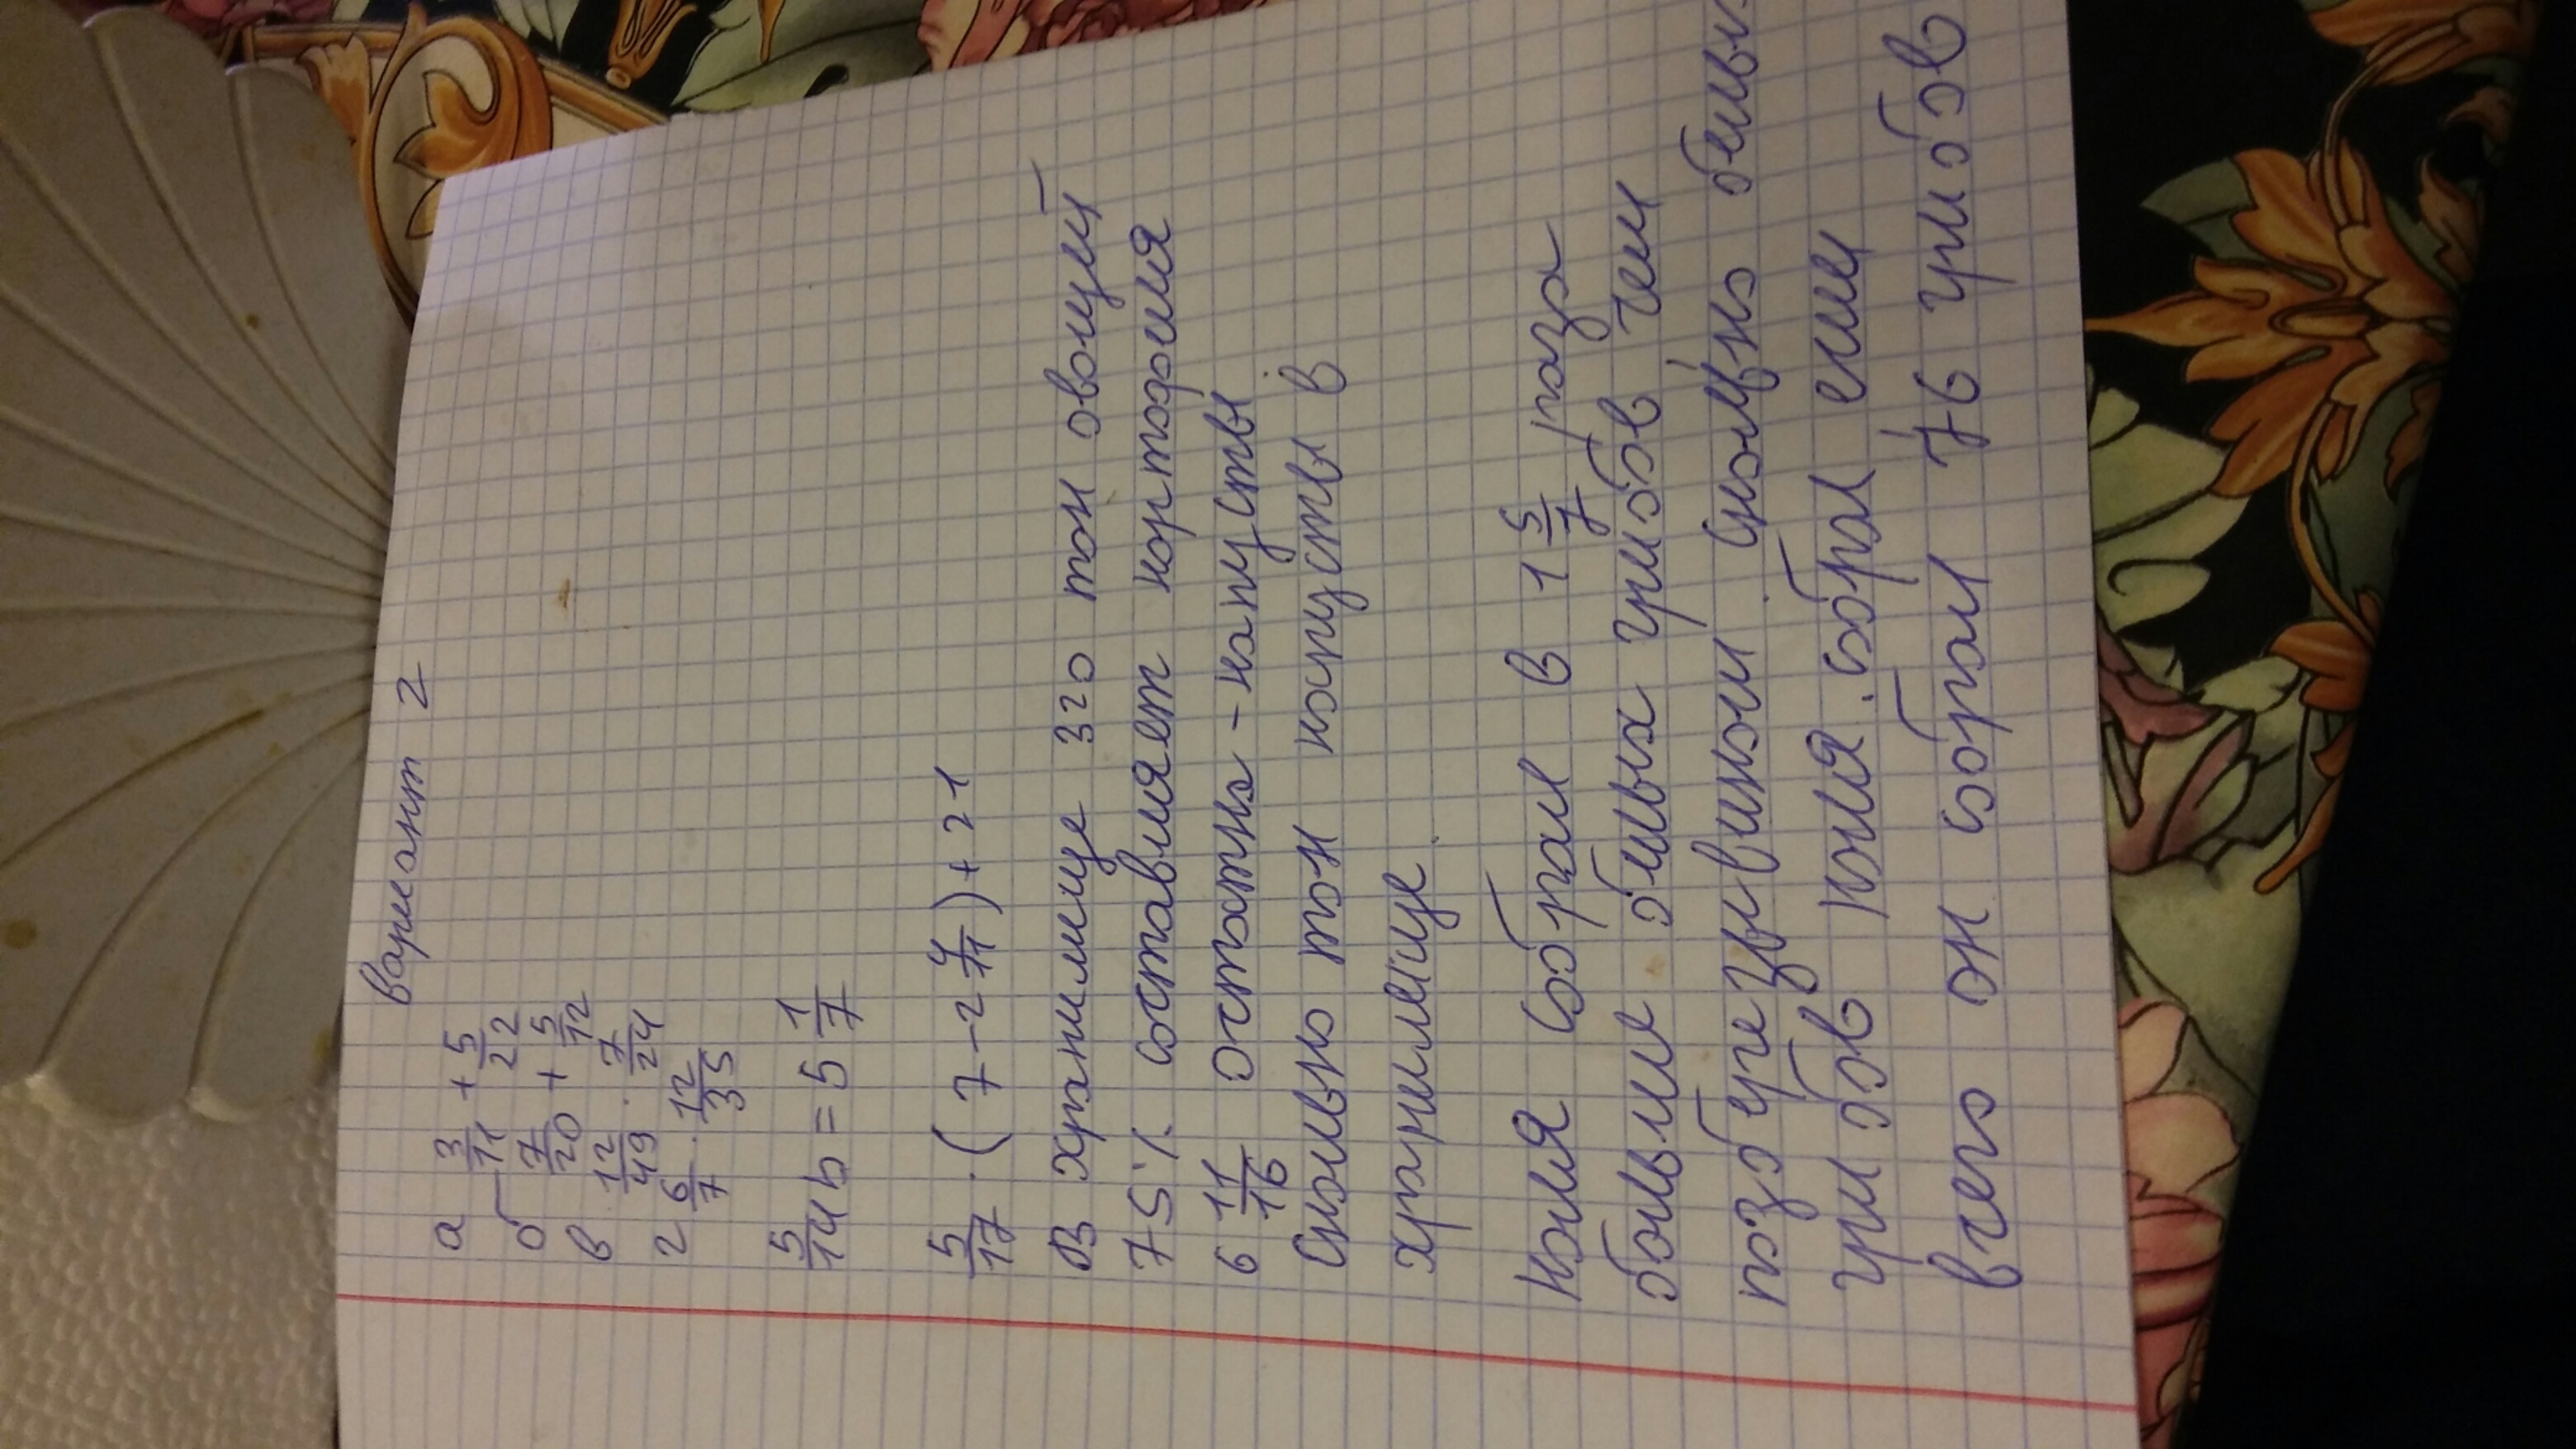 Вариант 2
а 3/11 + 5/22
б 7/20 + 5/12
в 12/49 · 7/24
г 6/7 · 12/35
5/14 b = 5 1/7
5/17 · ( 7 - 2 4/11 ) + 21
В хранилище 320 тон овощей
75% составляет картофиля
6 11/16 остатка - капусты
Сколько тон капусты в
хранилище.
Коля собрал в 1 5/7 раза
больше белых грибов чем
подберезывиков. сколько белых
грибов Коля. собрал если
всего он собрал 76 грибов